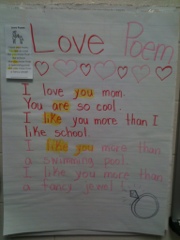 Love Poem
I love you mom.
You are so cool.
I like you more than I
like school.
I like you more than
a swimming pool.
I like you more than
a fancy jewel!